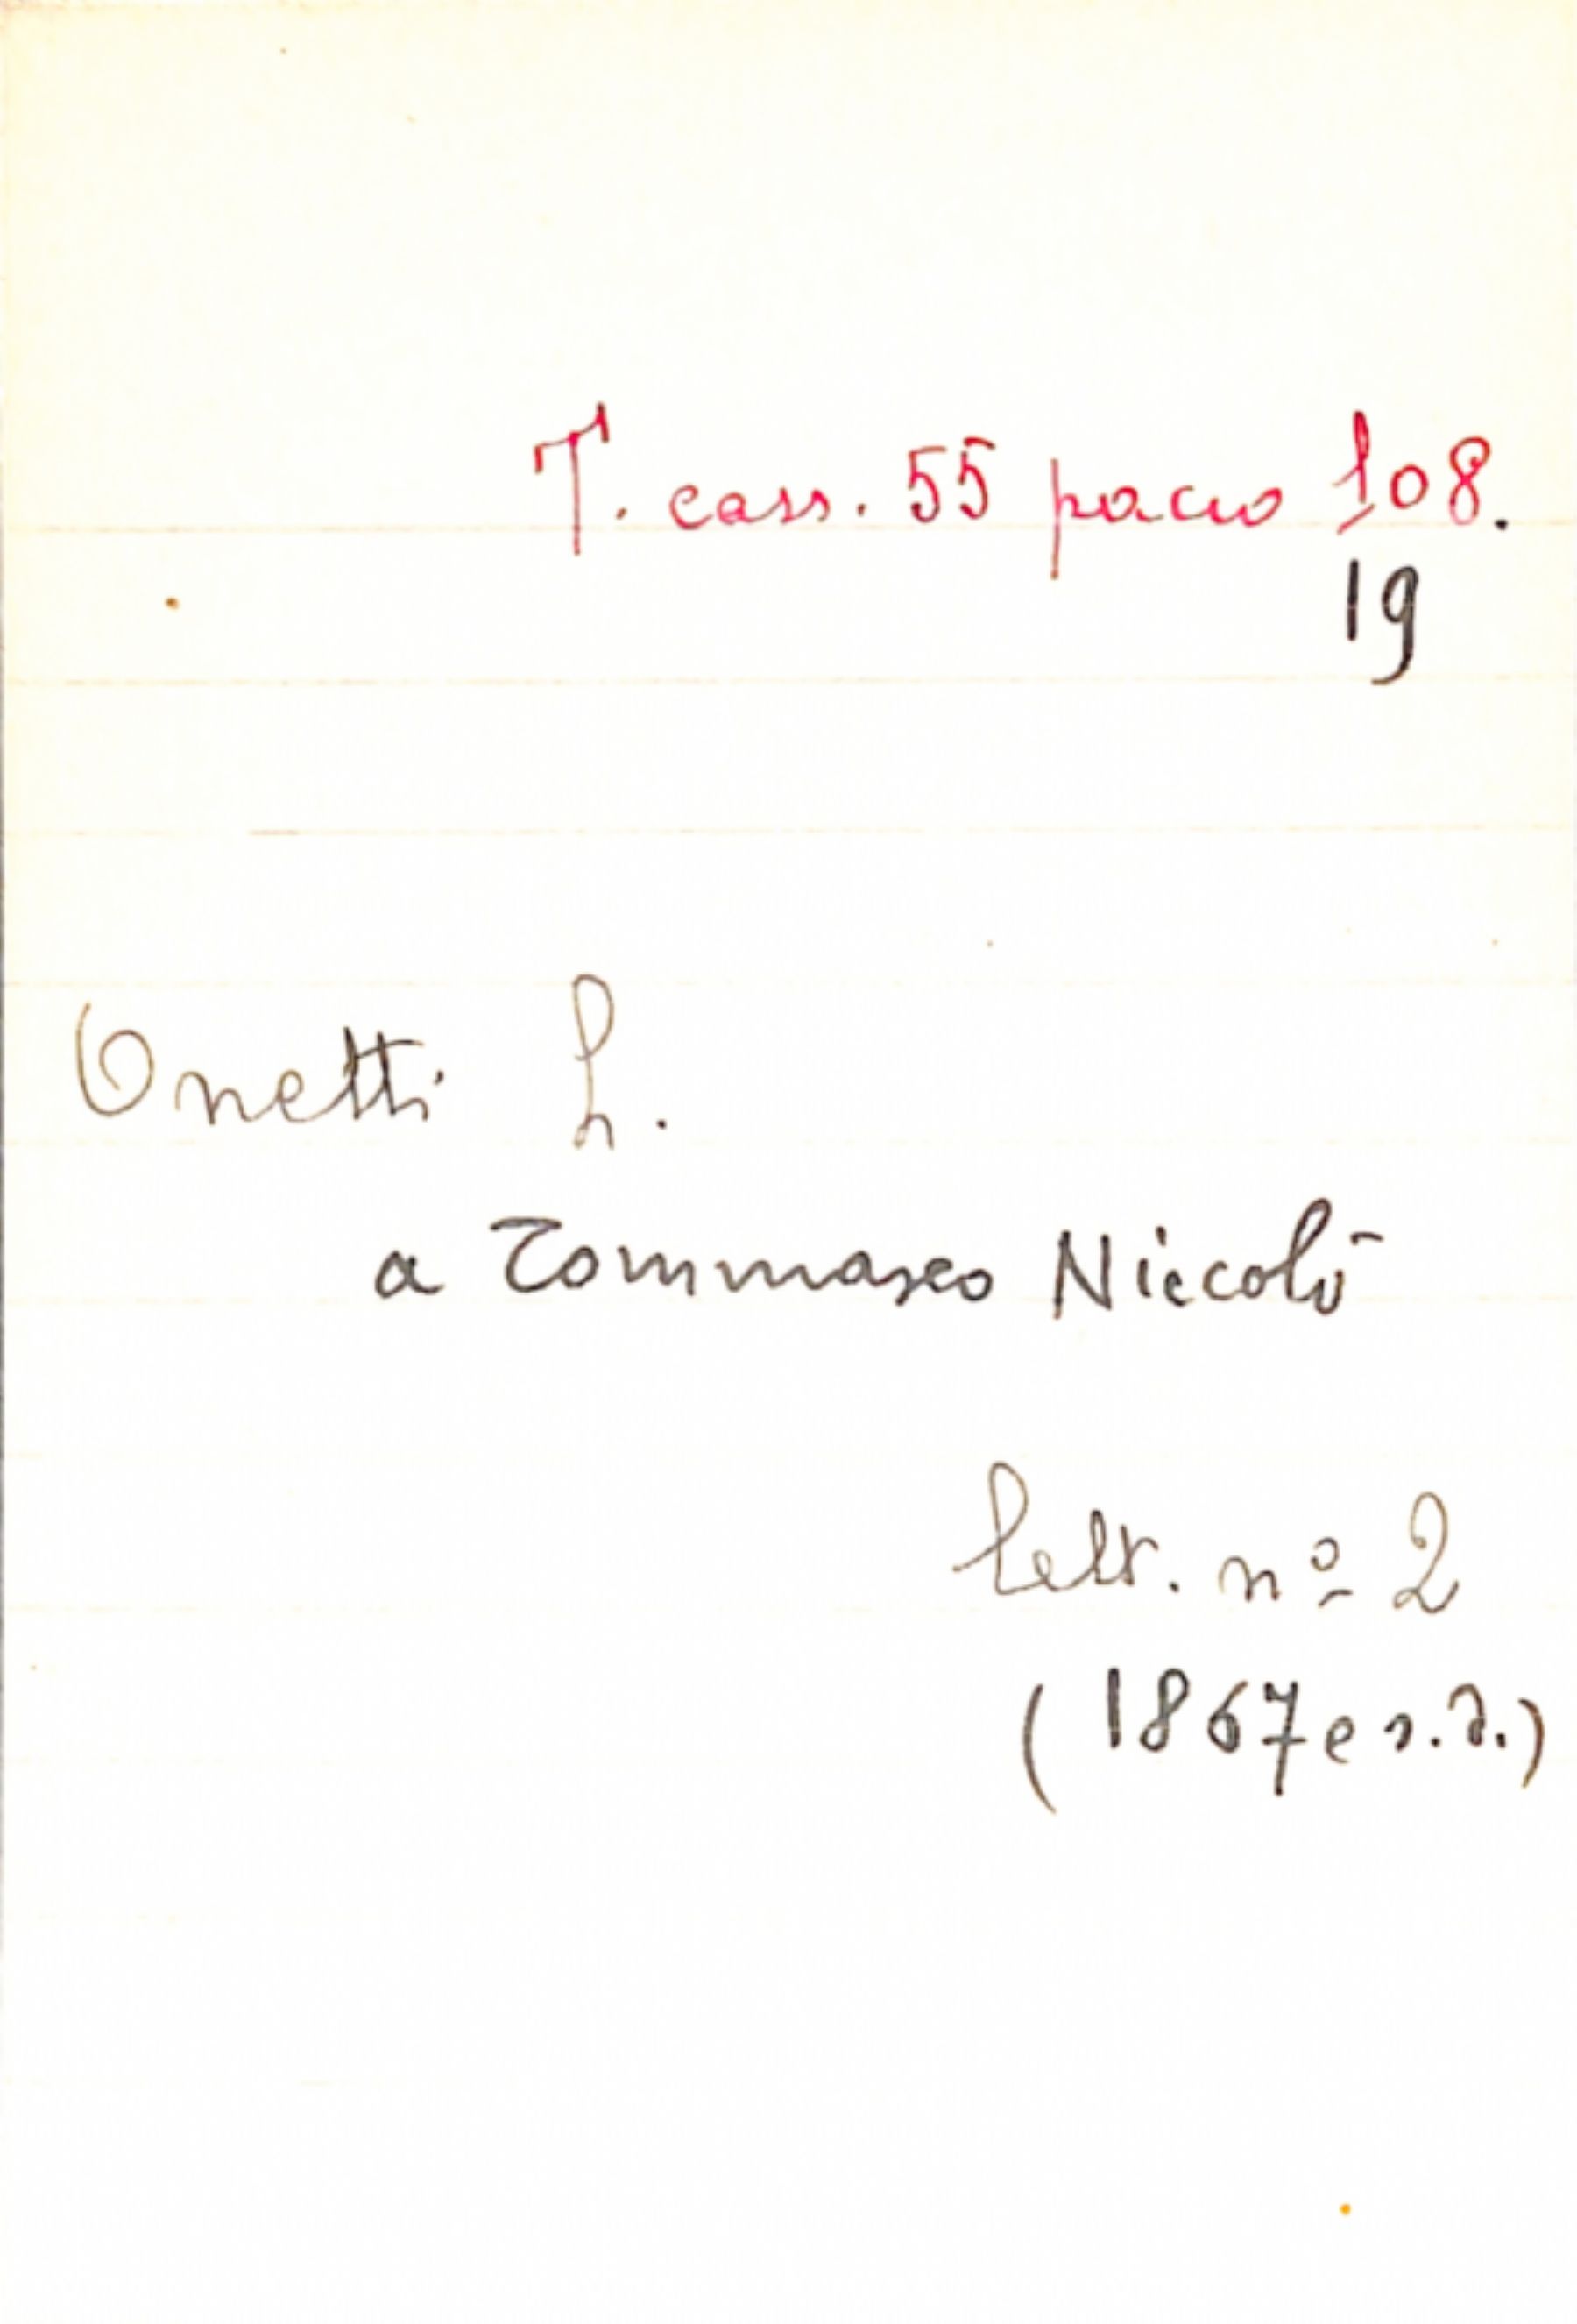 T. cass. 55 pacco 108.
19
Onetti L.
a Tommaseo Niccolò
lett. nº 2
(1867 e s.d.)